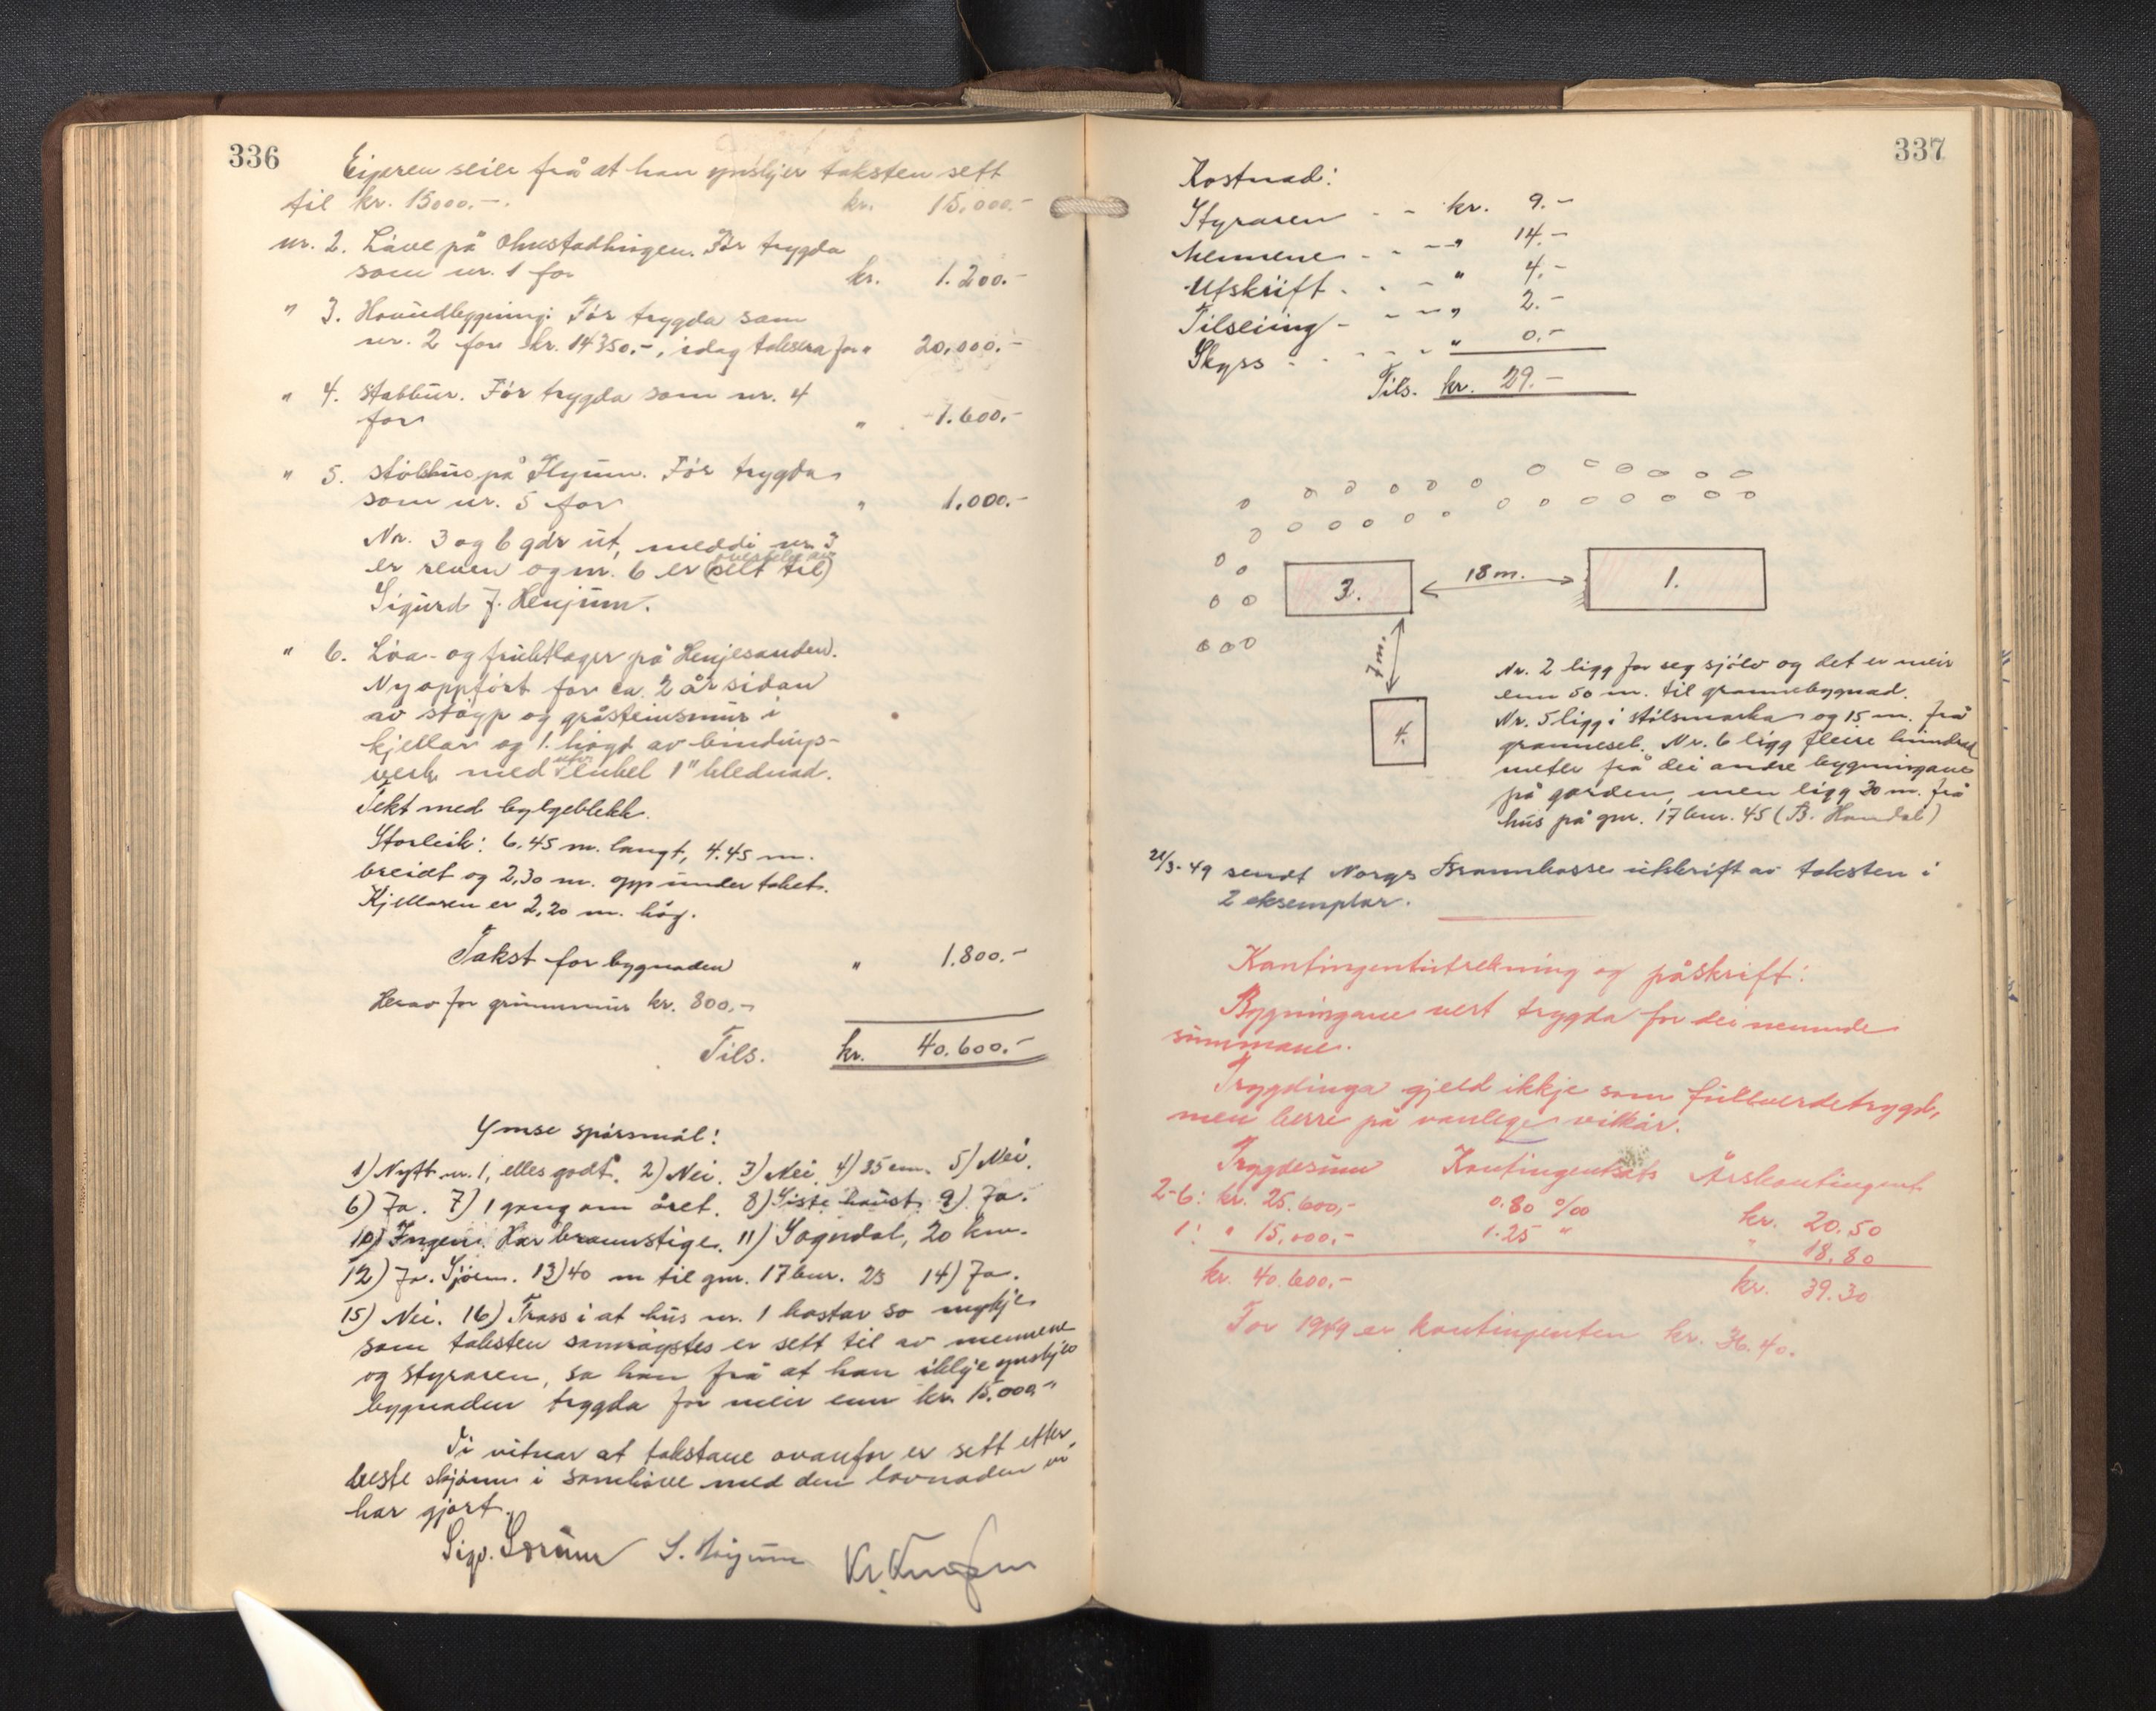 336
Eigaren seier frå at han ynskjer taksten sett
til kr. 15000.-. kr. 15.000.-
nr. 2. Løve på Ohnstadhingen. Før trygda
som nr. 1 for kr. 1.200.-
" 3. Hovudbygning: Før trygda som
nr. 2 for kr. 14350.-, idag taksera for " 20.000.-
" 4. Stabbur. Før trygda som nr. 4
for " 1.600.-
" 5. Stølshus på Flyum. Før trygda
som nr. 5 for " 1.000.-
Nr. 3 og 6 går ut, meddi nr. 3
er reven og nr. 6 er (selt til)
Sigurd J. Henjum.
" 6. Løa- og fruktlager på Henjesanden.
Nyoppført for ca. 2 år sidan
av støyp og gråsteinsmur i
kjellar og 1. høgd av bindings-
verk med utv. enkel 1" klednad.
Tekt med bylgeblekk.
Storleik: 6.45 m. langt, 4.45 m.
breidt og 2,30 m. opp under taket.
Kjellaren er 2,20 m. høg.
Takst for bygnaden " 1.800.-
Herav for grunnmur kr. 800,-
Tils. kr. 40.600.-
Ymse spørsmål:
1) Nytt nr. 1, elles godt. 2) Nei. 3) Nei. 4) 35 cm. 5) Nei.
6) Ja. 7) 1 gong om året. 8) Siste haust. 9) Ja.
10) Ingen. Har brannstige. 11) Sogndal, 20 km.
12) Ja. Sjøen. 13) 40 m til gnr. 17 bnr. 23 14) Ja.
15) Nei. 16) Trass i at hus nr. 1 kostar so mykje
som taksten samrøystes er sett til av mennene
og styraren, sa han frå at han ikkje ynskjer
bygnaden trygda for meir enn kr. 15.000,-
Vi vitnar at takstane ovanfor er sett etter
beste skjønn i samhøve med den lovnaden vi
har gjort.
Sigv. Sørum S. Høyum
337
Kostnad:
Styraren - - kr. 9.-
Mennene - - - " 14.-
Utskrift - - - " 4.-
Tilseiing - - - " 2.-
Skyss - - - - " 0.-
Tils. kr. 29.-
3. 18 m. 1.
7 m.
4.
Nr. 2 ligg for seg sjølv og det er meir
enn 50 m. til grannebygnad.
Nr. 5 ligg i stølsmarka og 15 m. frå
grannesel. Nr. 6 ligg fleire hundrad
meter frå dei andre bygningane
på garden, men ligg 30 m. frå
hus på gnr. 17 bnr. 45 (B. Hamdal)
21/3-49 sendt Norges Brannkasse utskrift av taksten i
2 eksemplar.
Kontingentutrekning og påskrift:
Bygningane vert trygda for dei nemnde
summane.
Trygdinga gjeld ikkje som fullverdetrygd,
men berre på vanlege vilkår.
Trygdesum Kontingentsats Årskontingent
2-6: kr. 25.600,- 0.80 ‰ kr. 20.50
1: " 15.000,- 1.25 " " 18.80
kr. 40.600.- kr. 39.30
For 1949 er kontingenten kr. 36.40.